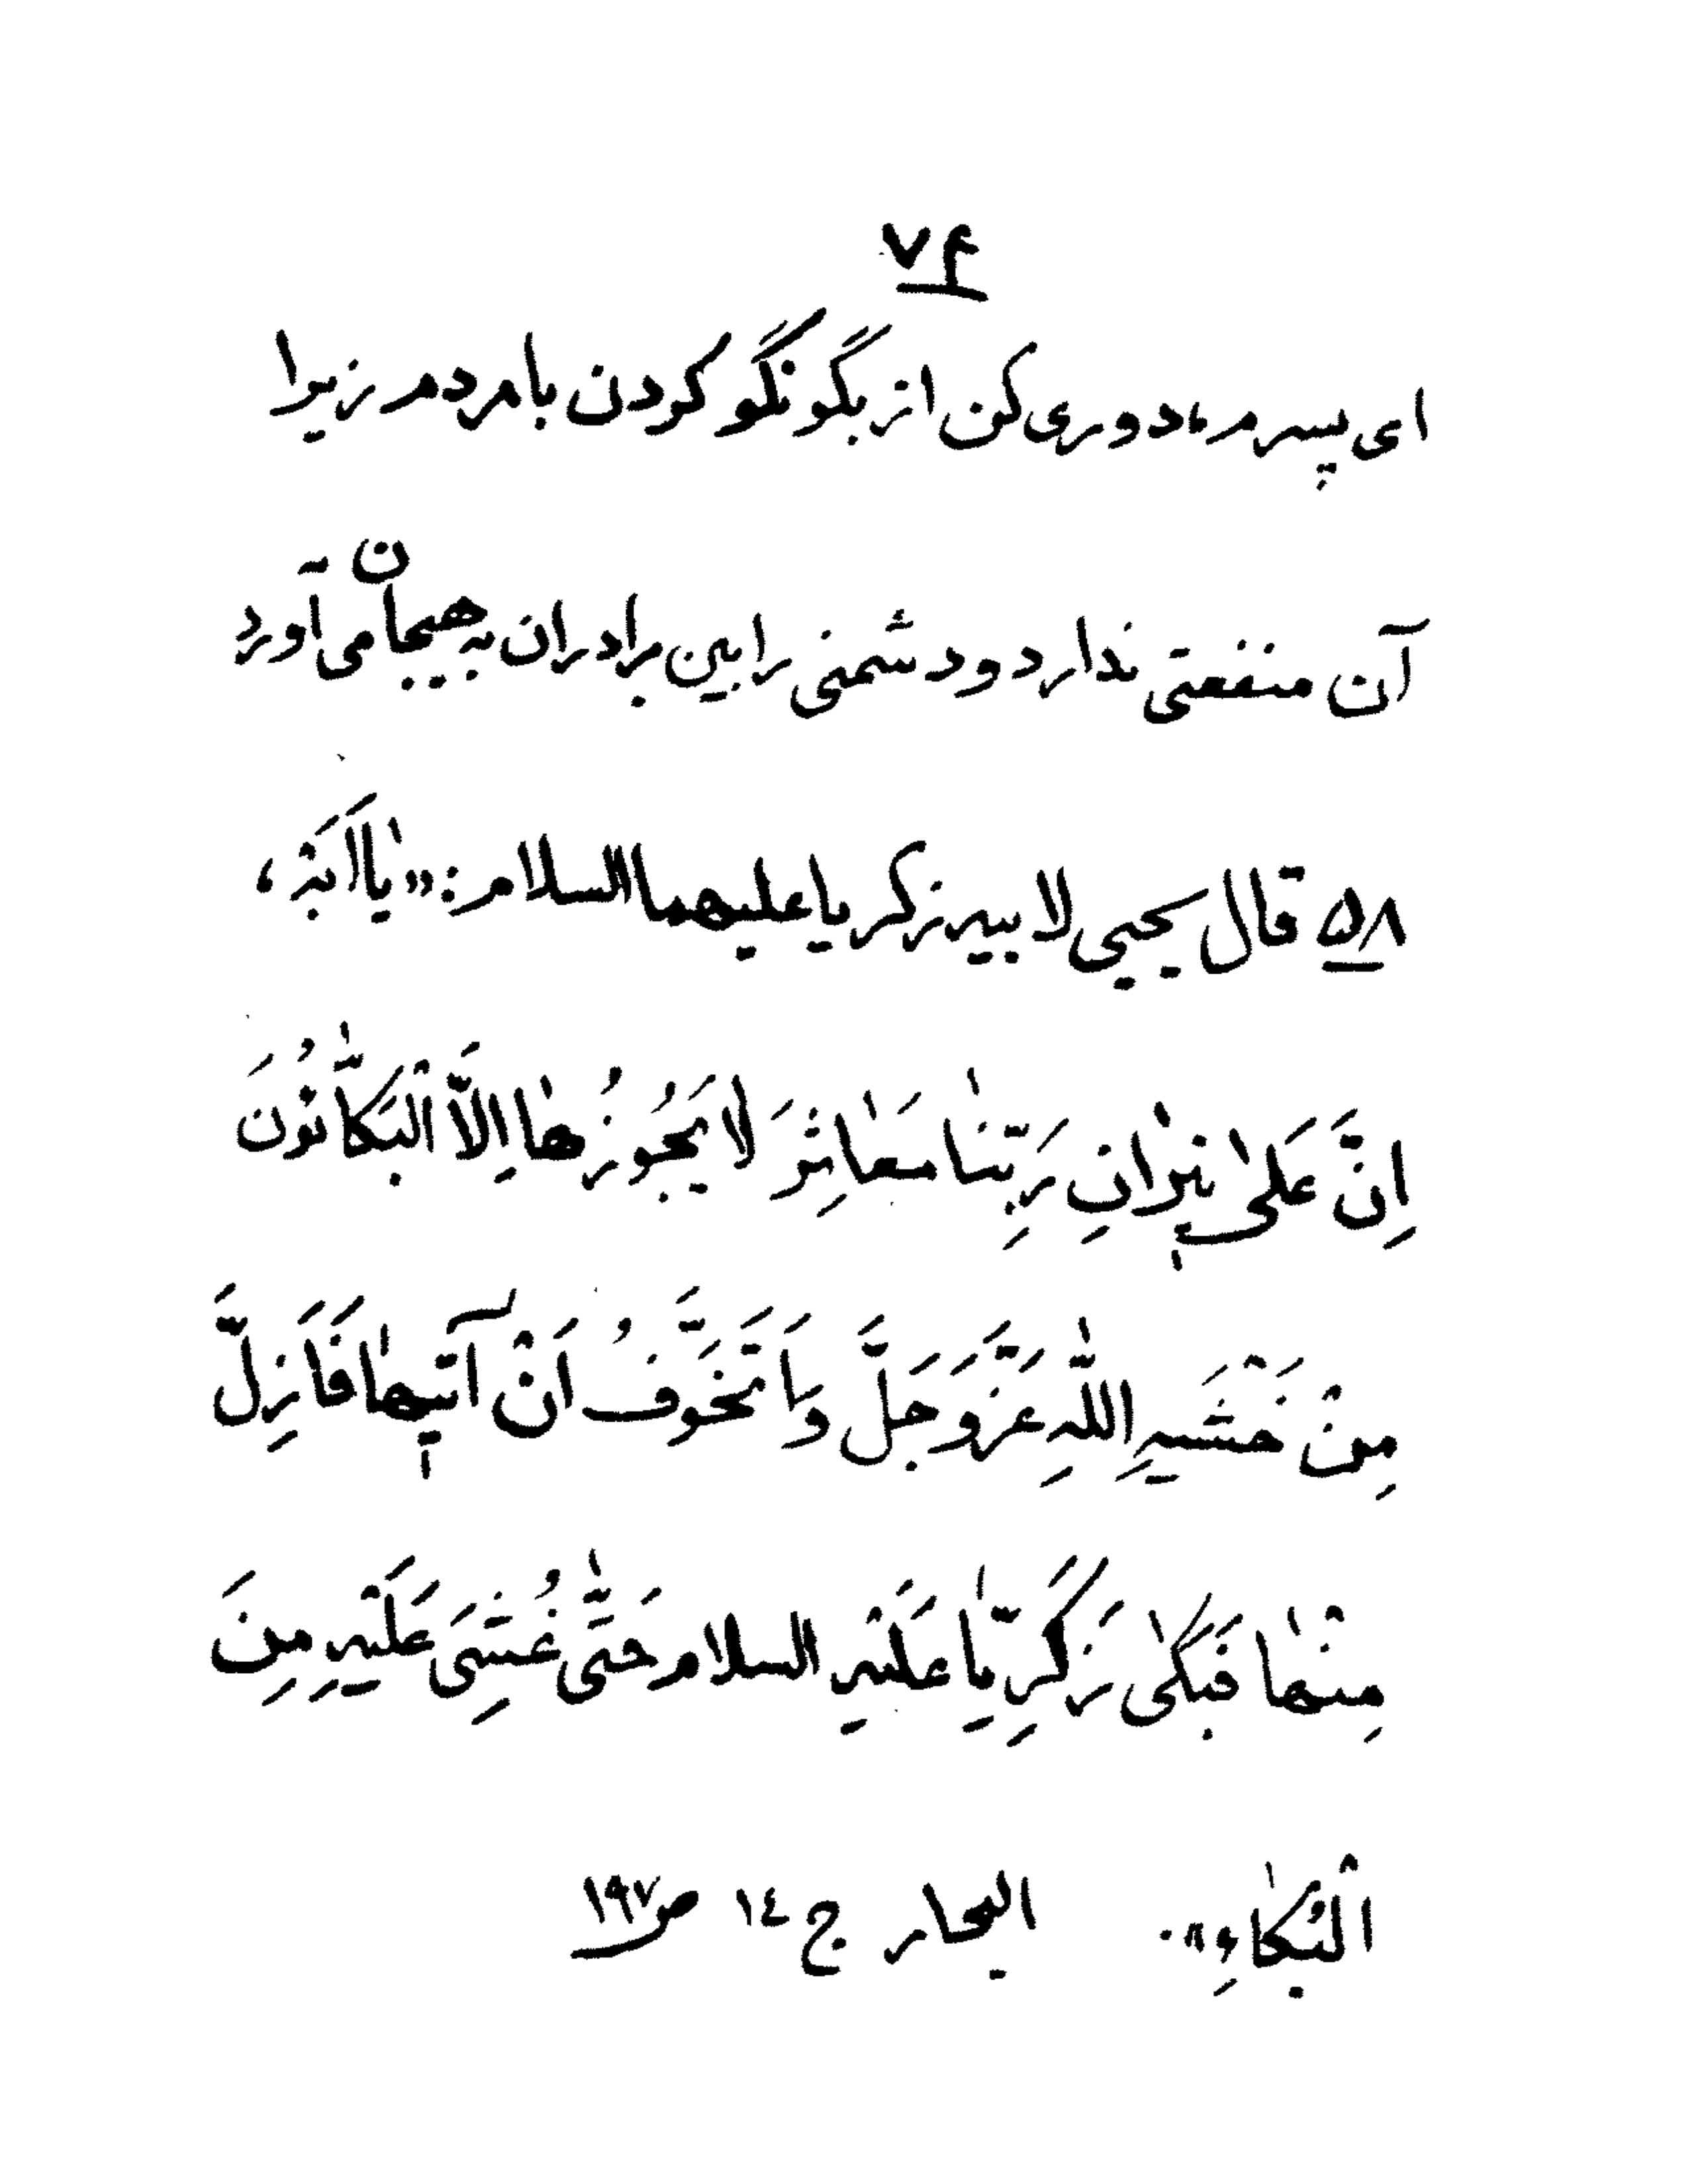 ۷۴
ای پسرم، دوری کن از بگونگو کردن با مردم زیرا
آن منفعتی ندارد و دشمنی را بین برادران به هیجان می آورد
۵۸ قال یحیی لابیه زکریا علیهما السلام: «یٰا اَبَهْ،
اِنَّ عَلیٰ نیٖرٰانِ رَبِّنٰا مَعٰاثِرَ لٰا یَجُوزُهٰا اِلاَّ اَلْبَکّٰائُونَ
مِنْ خَشْیَهِ اللّٰهِ عَزَّوَجَلَّ وَ اَتَخَوَّفُ اَنْ آتیٖهٰا فَاَزِلَّ
مِنْهٰا فَبَکیٰ زَکَرِیّٰا عَلَیْهِ السلام حَتّٰی غُشِیَ عَلَیْهِ مِنَ
اَلْبُکٰاءِ». البحار ج ۱٤ ص ۱۹۷